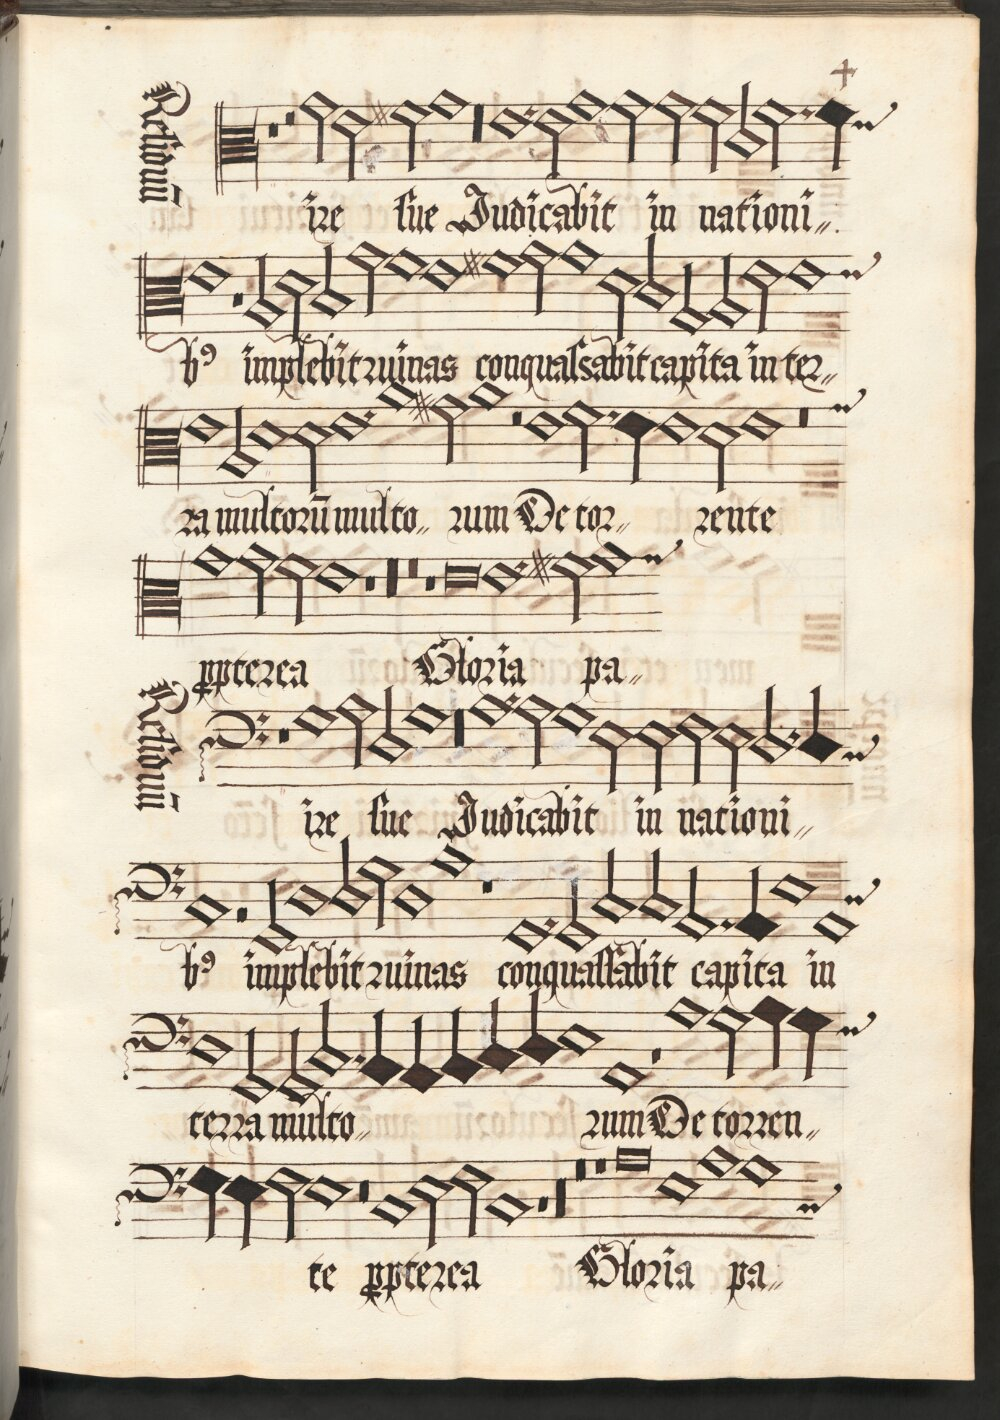 Residuũ
ire sue Judicabit in nationi„
bꝰ implebit ruinas conquassabit capita in ter„
ra multorũ multo„ rum De tor„ rente
ꝓpterea Gloria pa„
Residuũ
ire sue Judicabit in nationi„
bꝰ implebit ruinas conquassabit capita in
terra multo„ rum De torren„
te ꝓpterea Gloria pa„